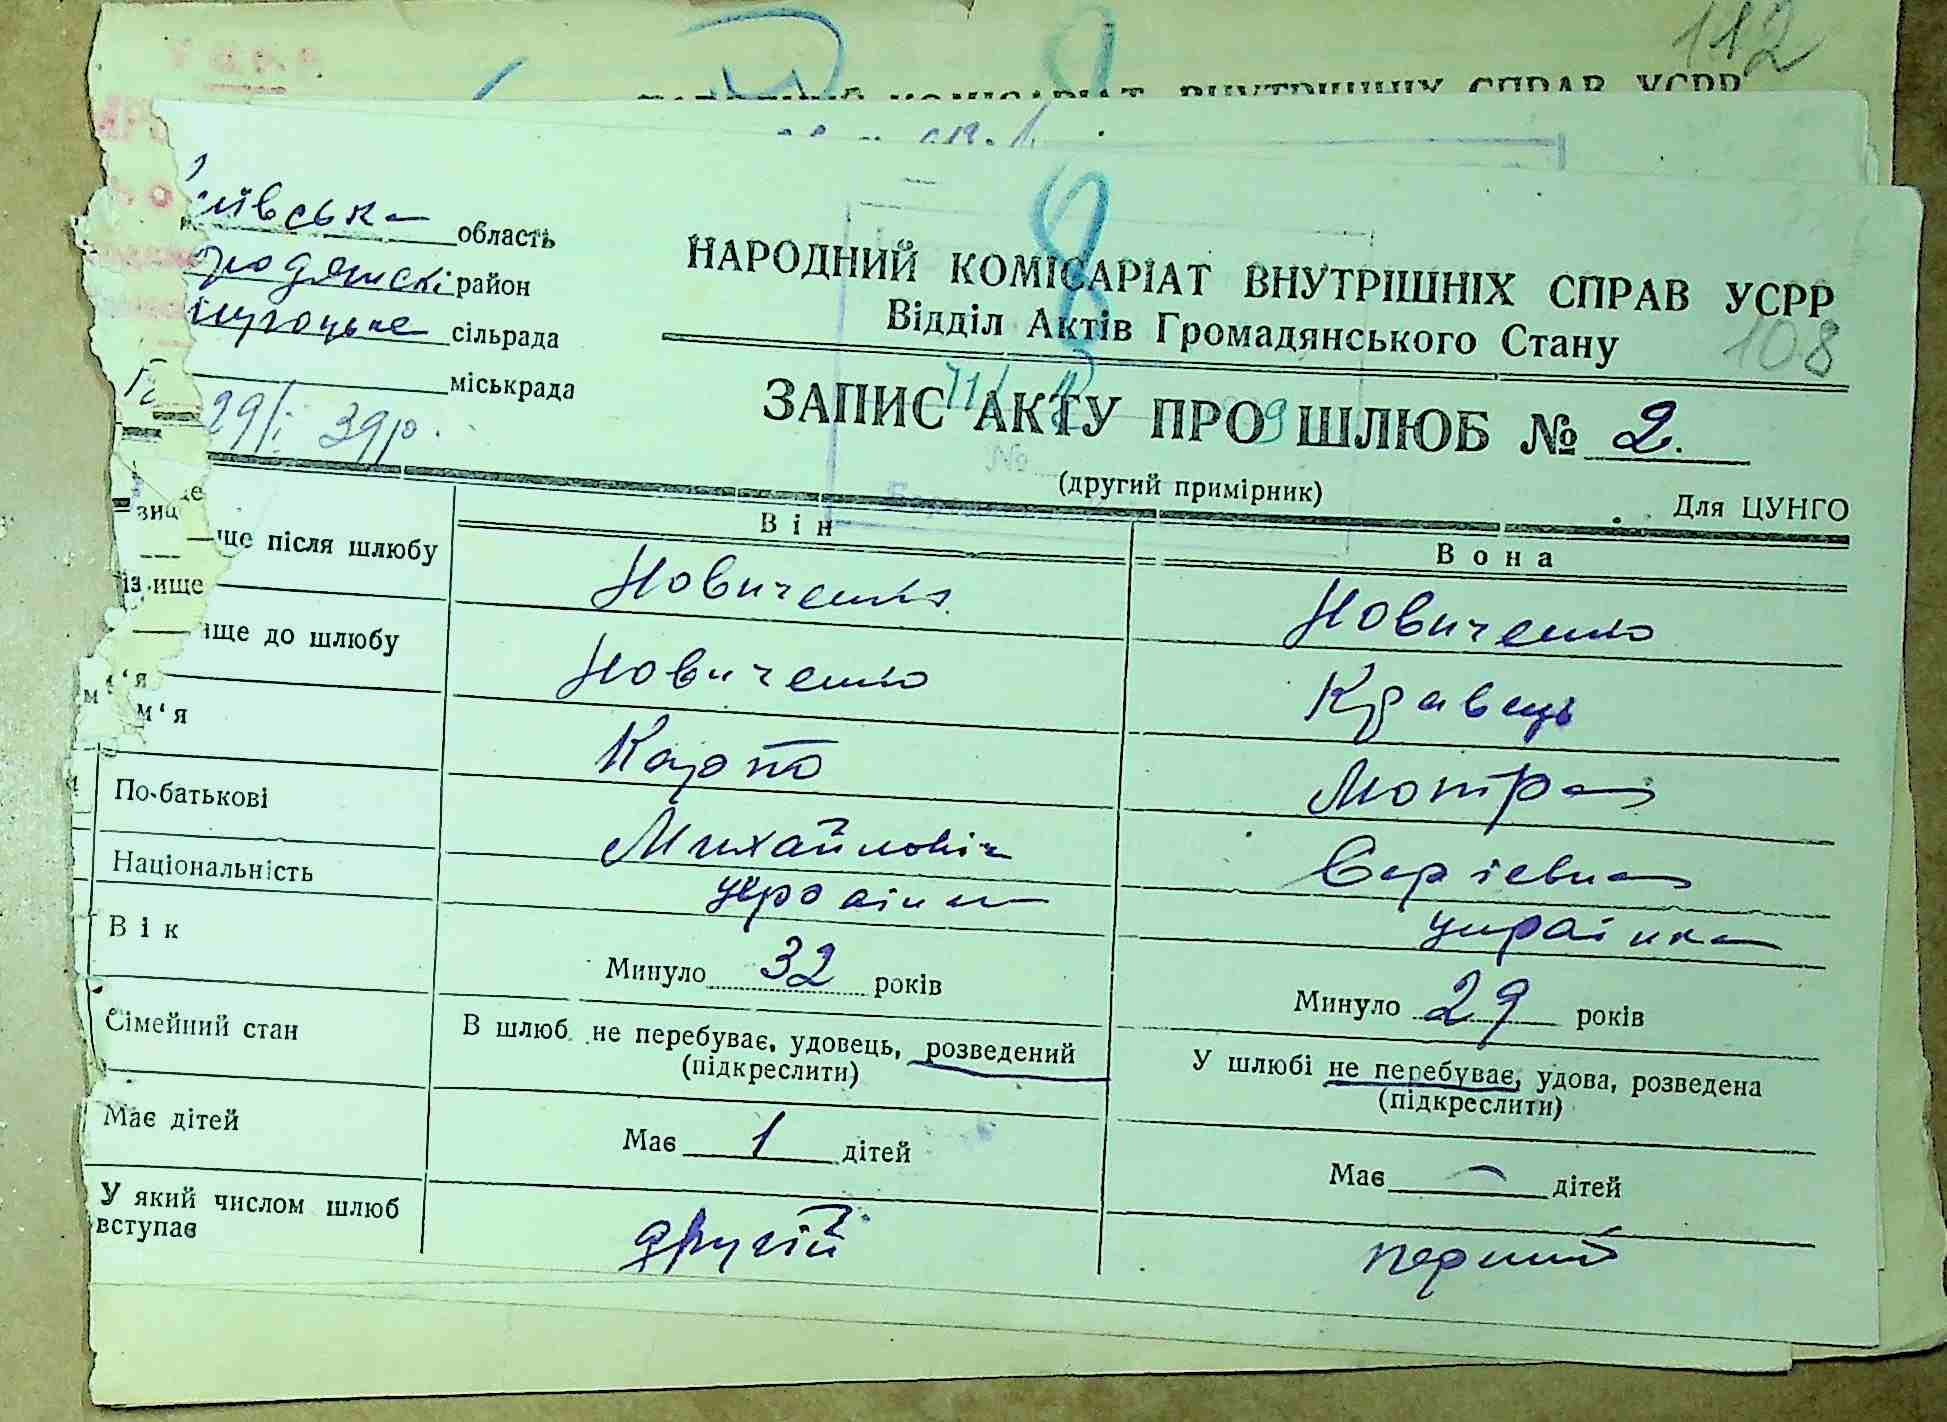 112
НАРОДНИЙ КОМІСАРІАТ ВНУТРІШНІХ СПРАВ УСРР
8
иївська область
родянскі район
сільрада
міськрада
29/І 39р.
НАРОДНИЙ КОМІСАРІАТ ВНУТРІШНІХ СПРАВ УСРР
Відділ Актів Громадянського Стану
108
ЗАПИС АКТУ ПРО ШЛЮБ № 2.
(другий примірник)
Для ЦУНГО
Він
Вона
ще після шлюбу Новиченко Новиченко
ізвище
ище до шлюбу Новиченко Кравець
м'я Карпо Мотра
По-батькові Михайловіч Сергієвна
Національність українец українка
Вік Минуло 32 років Минуло 29 років
Сімейний стан В шлюб. не перебуває, удовець, розведений У шлюбі не перебуває, удова, розведена
(підкреслити) (підкреслити)
Має дітей Має 1 дітей Має — дітей
У який числом шлюб
вступає другій первий